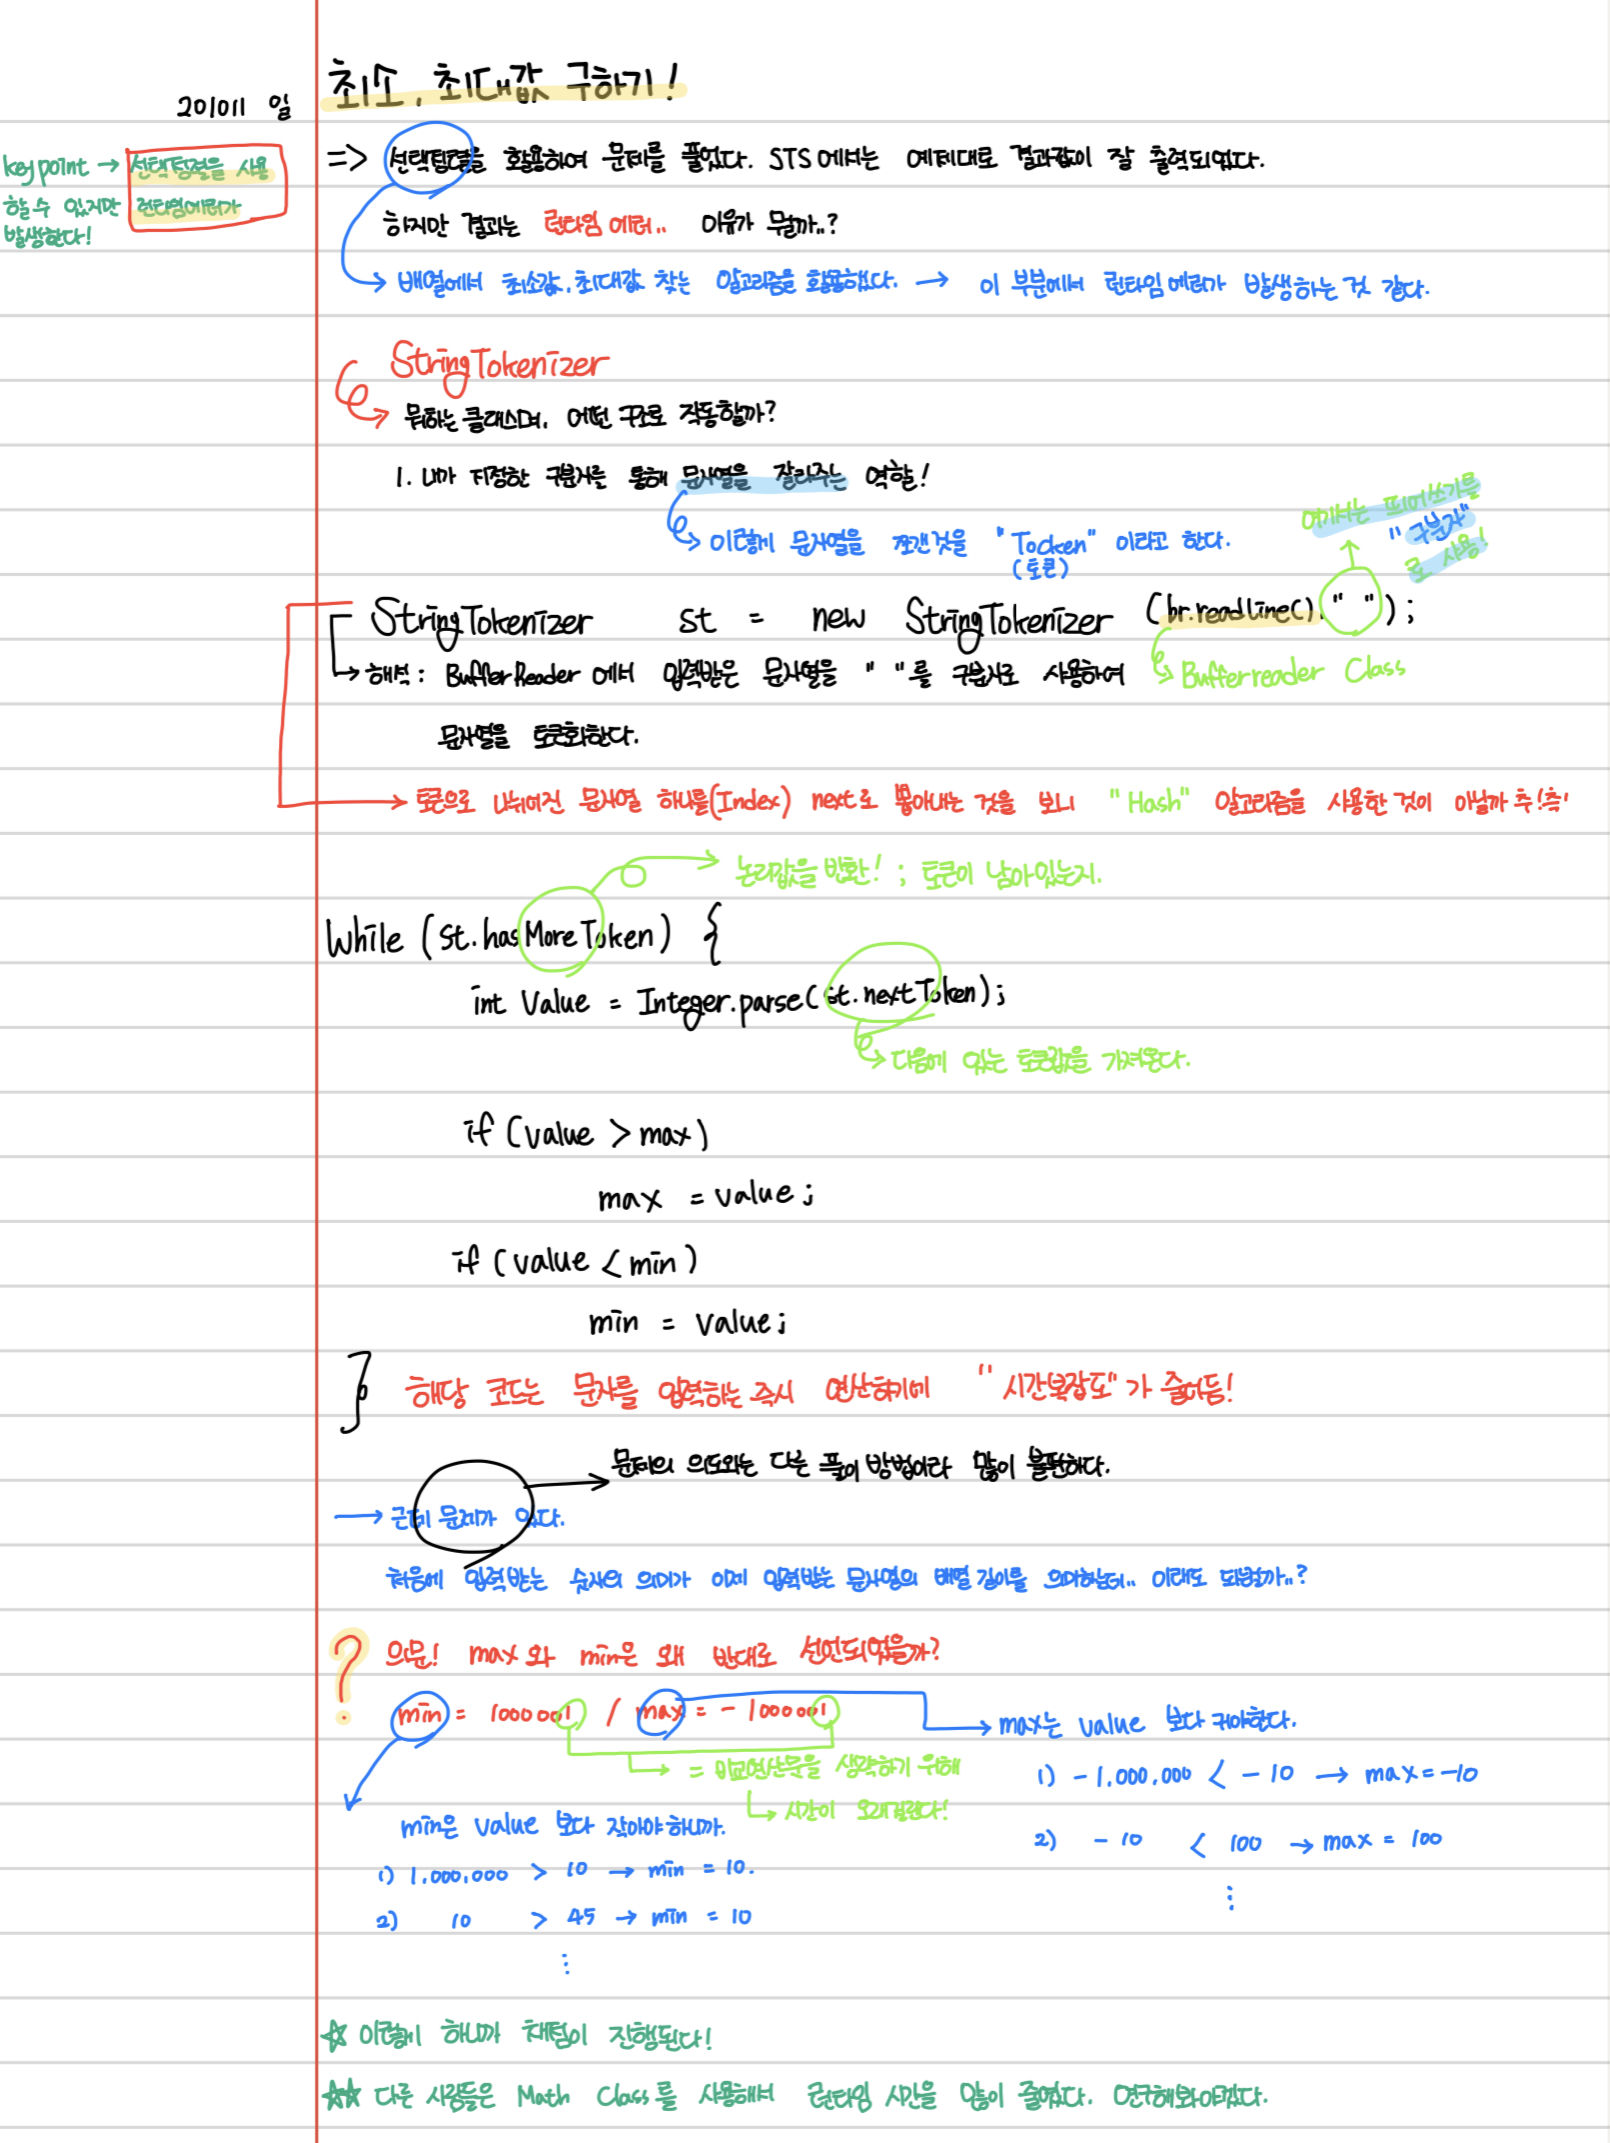 201011 일
최소, 최대값 구하기!
key point → 선택정렬을 사용
할 수 있지만 런타임에러가
발생한다!
=> 선택정렬을 활용하여 문제를 풀었다. STS에서는 예제대로 결과값이 잘 출력되었다.
하지만 결과는 런타임 에러.. 이유가 뭘까..?
→ 배열에서 최소값, 최대값 찾는 알고리즘을 활용했다. → 이 부분에서 런타임 에러가 발생하는 것 같다.
StringTokenizer
→ 뭐하는 클래스며, 어떤 구조로 작동할까?
1. 내가 지정한 구분자를 통해 문자열을 잘라주는 역할!
→ 이렇게 문자열을 쪼갠것을 "Tocken" 이라고 한다.
(토큰)
여기서는 띄어쓰기를
"구분자"
로 사용!
StringTokenizer st = new StringTokenizer (br.readLine(), " ");
→ 해석: BufferReader에서 입력받은 문자열을 " "를 구분자로 사용하여
→ Bufferreader Class
문자열을 토큰화한다.
→ 토큰으로 나뉘어진 문자열 하나를(Index) next로 뽑아내는 것을 보니 "Hash" 알고리즘을 사용한 것이 아닐까 추측!
→ 논리값을 반환! ; 토큰이 남아있는지.
While (st.hasMoreToken) {
int Value = Integer.parse(st.nextToken);
→ 다음에 있는 토큰값을 가져온다.
if (value > max)
max = value;
if (value < min)
min = value;
} 해당 코드는 문자를 입력하는 즉시 연산하기에 "시간복잡도"가 줄어듬!
→ 문제의 의도와는 다른 풀이 방법이라 많이 불편하다.
→ 근데 문제가 있다.
처음에 입력받는 숫자의 의미가 이제 입력받는 문자열의 배열 길이를 의미하는데.. 이래도 되는걸까..?
? 의문! max와 min은 왜 반대로 선언되었을까?
min = 1000001 / max = -1000001
→ max는 value 보다 커야한다.
→ = 비교연산문을 생략하기 위해
→ 시간이 오래걸린다!
1) -1,000,000 < -10 → max = -10
2) -10 < 100 → max = 100
⋮
min은 value 보다 작아야 하니까.
1) 1,000,000 > 10 → min = 10.
2) 10 > 45 → min = 10
⋮
☆ 이렇게 하니까 채점이 진행된다!
☆☆ 다른 사람들은 Math Class를 사용해서 런타임 시간을 많이 줄였다. 연구해봐야겠다.